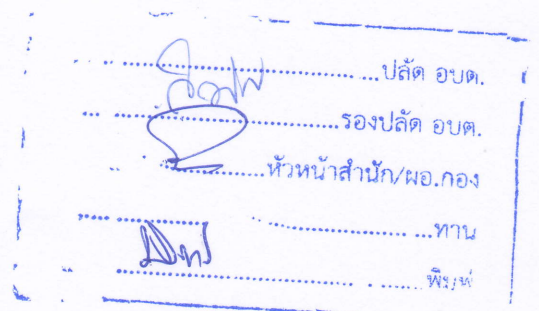 ....................ปลัด อบต.
....................รองปลัด อบต.
....................หัวหน้าสำนัก/ผอ.กอง
....................ทาน
....................พิมพ์